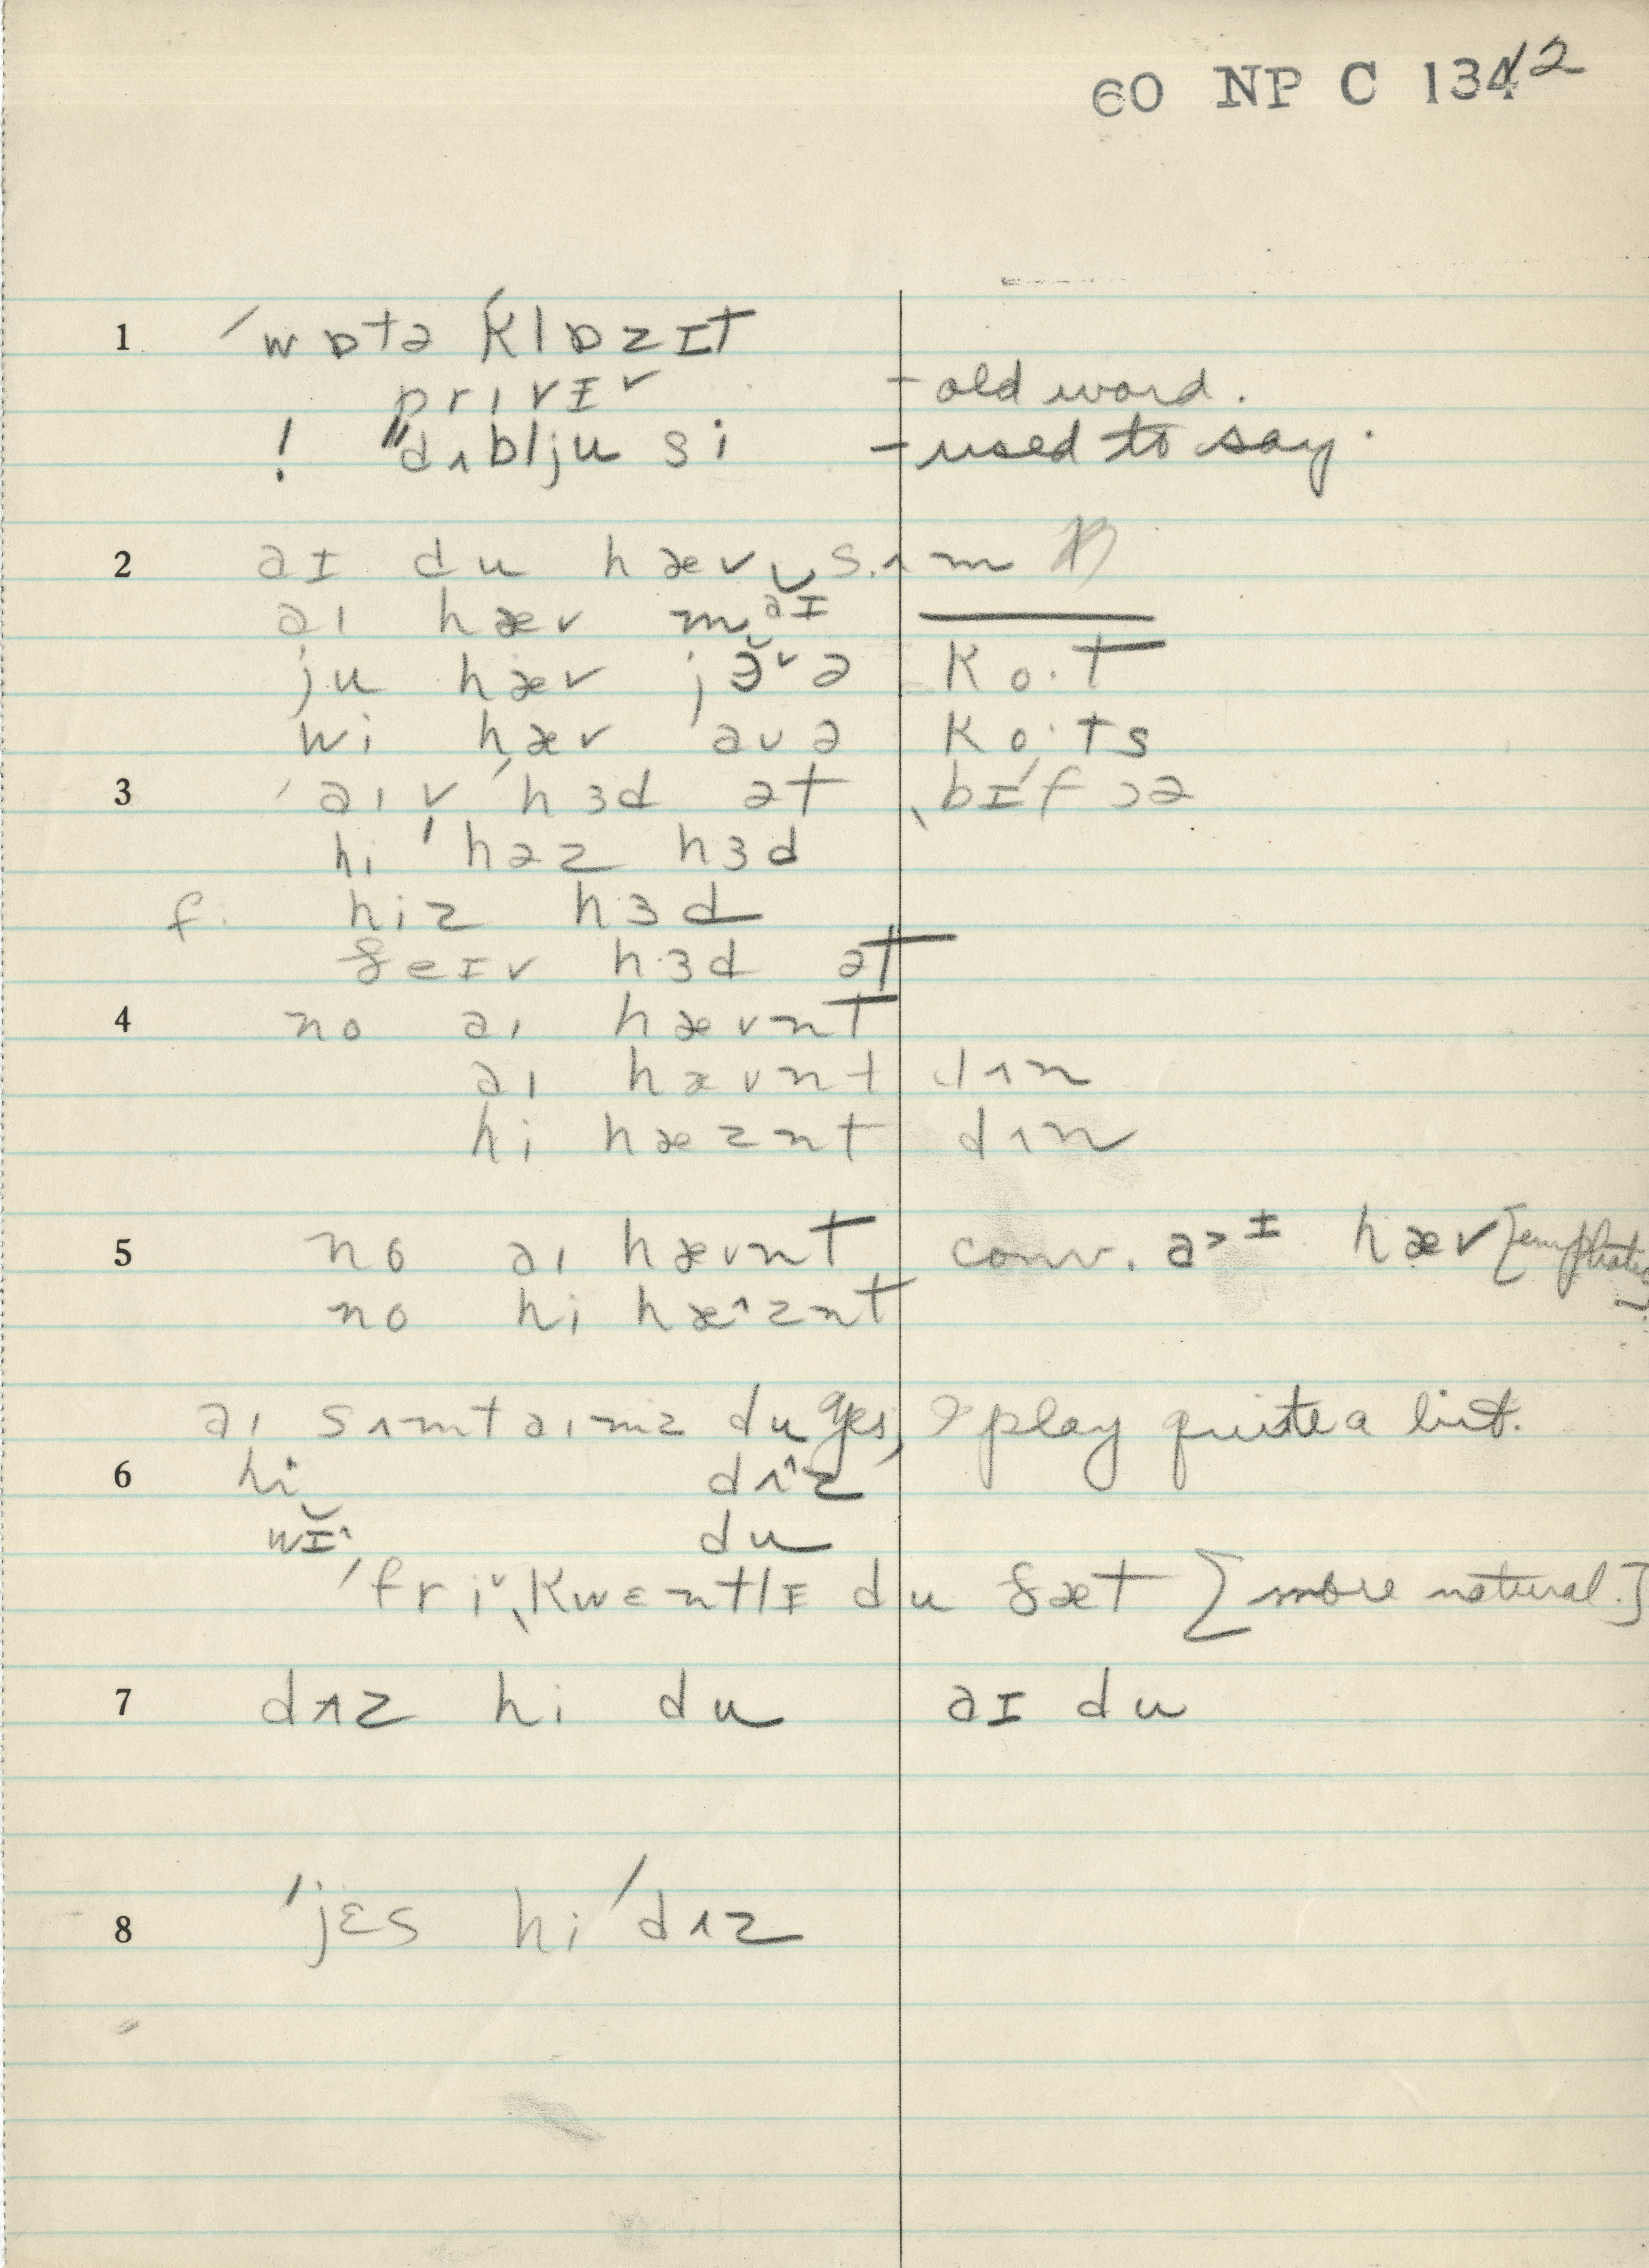 60 NP C 13412
1 ˈwɒtə ˈklɒzɪt
prɪvɪ˅ - old word.
! "dʌblju si - used to say.
2 aɪ du hæv sʌm
aɪ hæv maɪ
ju hæv jɜ˅ə ko·t
wi hæv aʊə ko·ts
3 ˈaɪv ˈhɜd ət ˌbɪˈfɔə
hi ˈhəz hɜd
f. hiz hɜd
ðeɪv hɜd ət
4 no aɪ hævnt
aɪ hævnt dʌn
hi hæznt dʌn
5 no aɪ hævnt conv. a>ɪ hæv [emphatic]
no hi hæ^znt
aɪ sʌmtaɪmz du yes, I play quite a bit.
6 hi dʌ^z
wɪ^ du
ˈfri˅ˌkwɛntlɪ du ðæt [more natural.]
7 dʌz hi du aɪ du
8 ˈjɛs hi ˈdʌz